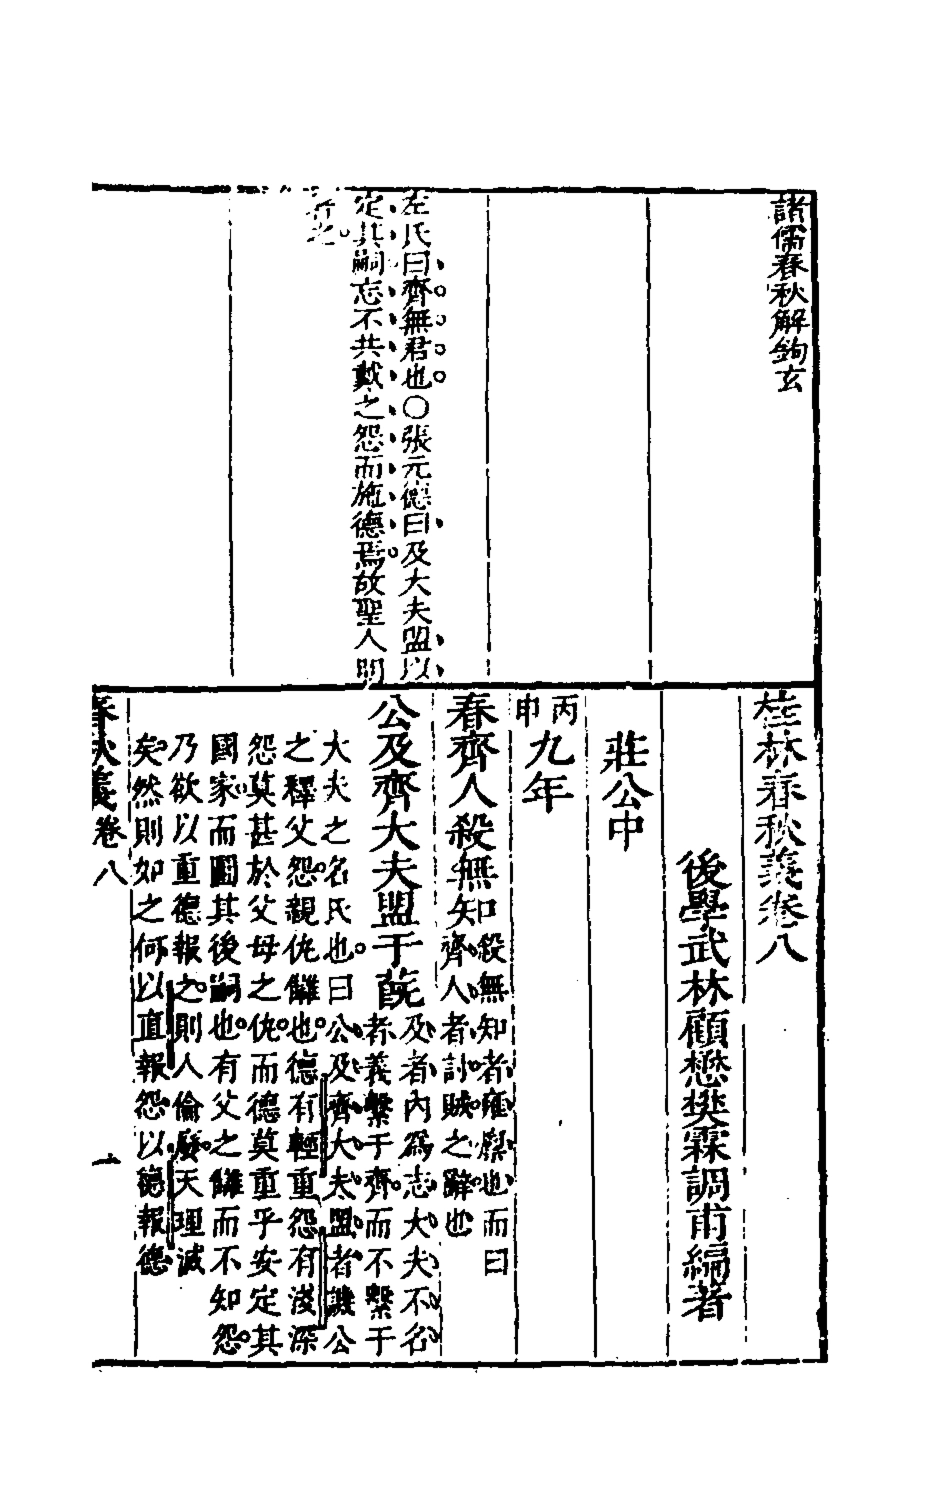 諸儒春秋解鉤玄
左氏曰齊無君也○張元德曰及大夫盟以
定其嗣忘不共戴之怨而施德焉故聖人明
著之
桂林春秋義卷八
後學武林顧懋樊霖調甫編著
莊公中
丙申九年
春齊人殺無知殺無知者雍廩也而曰
齊人者討賊之辭也
公及齊大夫盟于蔇及者內為志大夫不名
者義繫于齊而不繫于
大夫之名氏也曰公及齊大夫盟者譏公
之釋父怨親仇讎也德有輕重怨有淺深
怨莫甚於父母之仇而德莫重乎安定其
國家而圖其後嗣也有父之讎而不知怨
乃欲以重德報之則人倫廢天理滅
矣然則如之何以直報怨以德報德
春秋義卷八
一